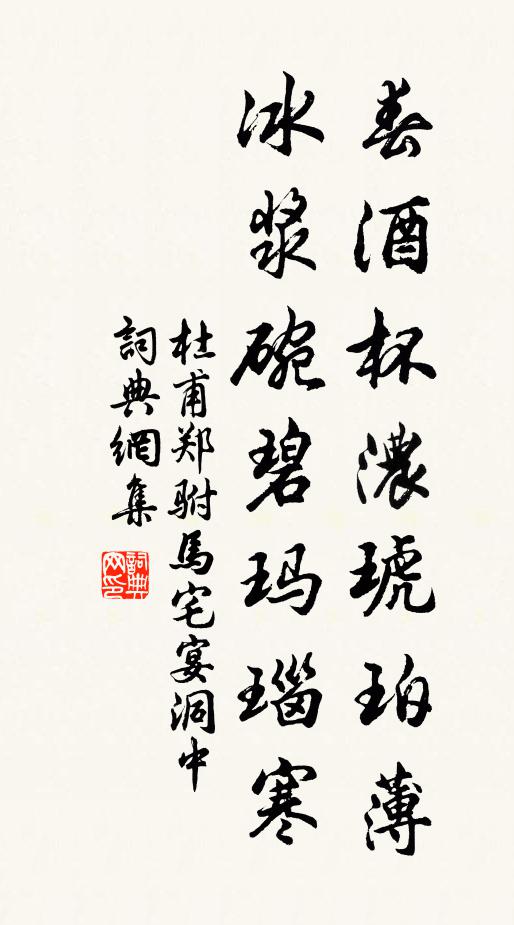 春酒杯濃琥珀薄
冰漿碗碧玛瑙寒
杜甫郑駙馬宅宴洞中
詞典網集
詞典
网印